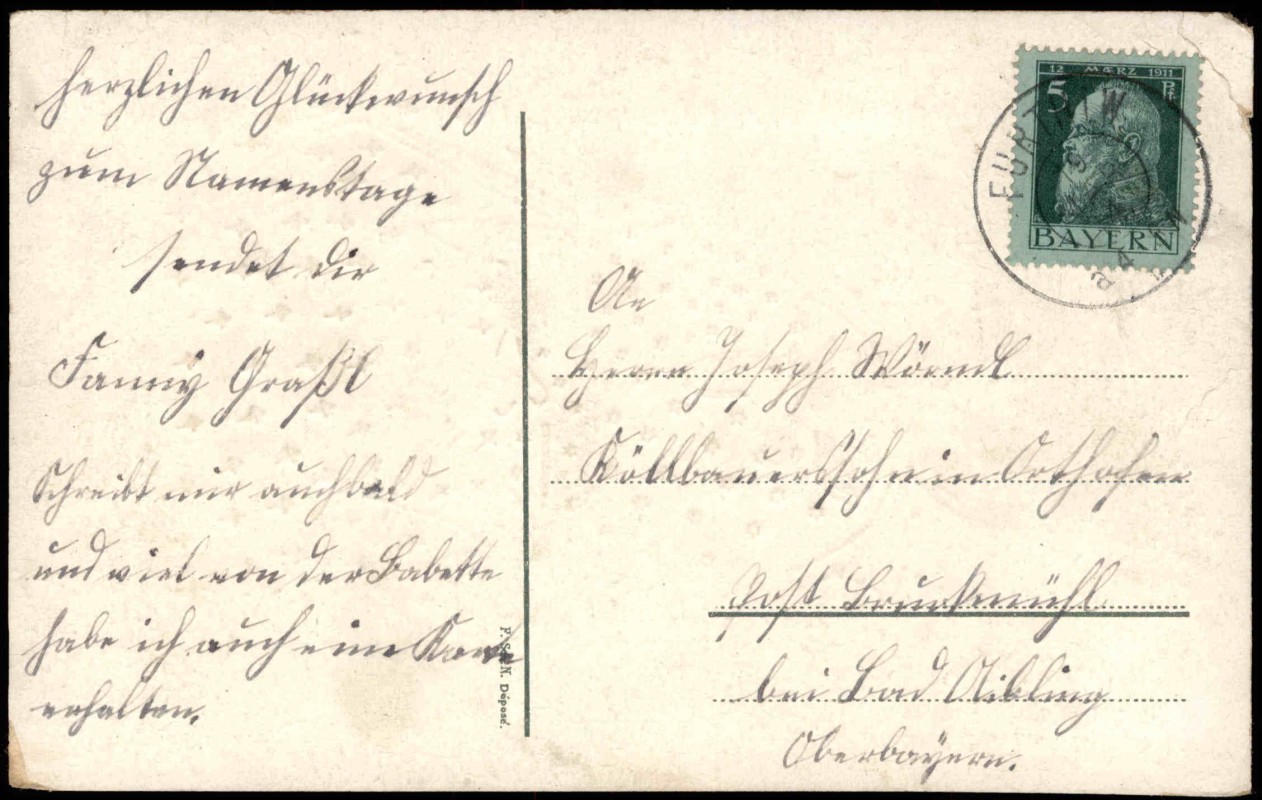 herzlichen Glückwunsch
zum Namenstage
sendet dir
Fanny Graßl
Schreibt mir auch bald
und viel von der Babette
habe ich auch eine Karte
erhalten.
F. S. N. Déposé.
12 MÆRZ 1911
5 Pf
BAYERN
FURT
An
Herrn Joseph Wörndl
Köllbauerssohn in Orthofen
Post Bruckmühl
bei Bad Aibling
Oberbayern.